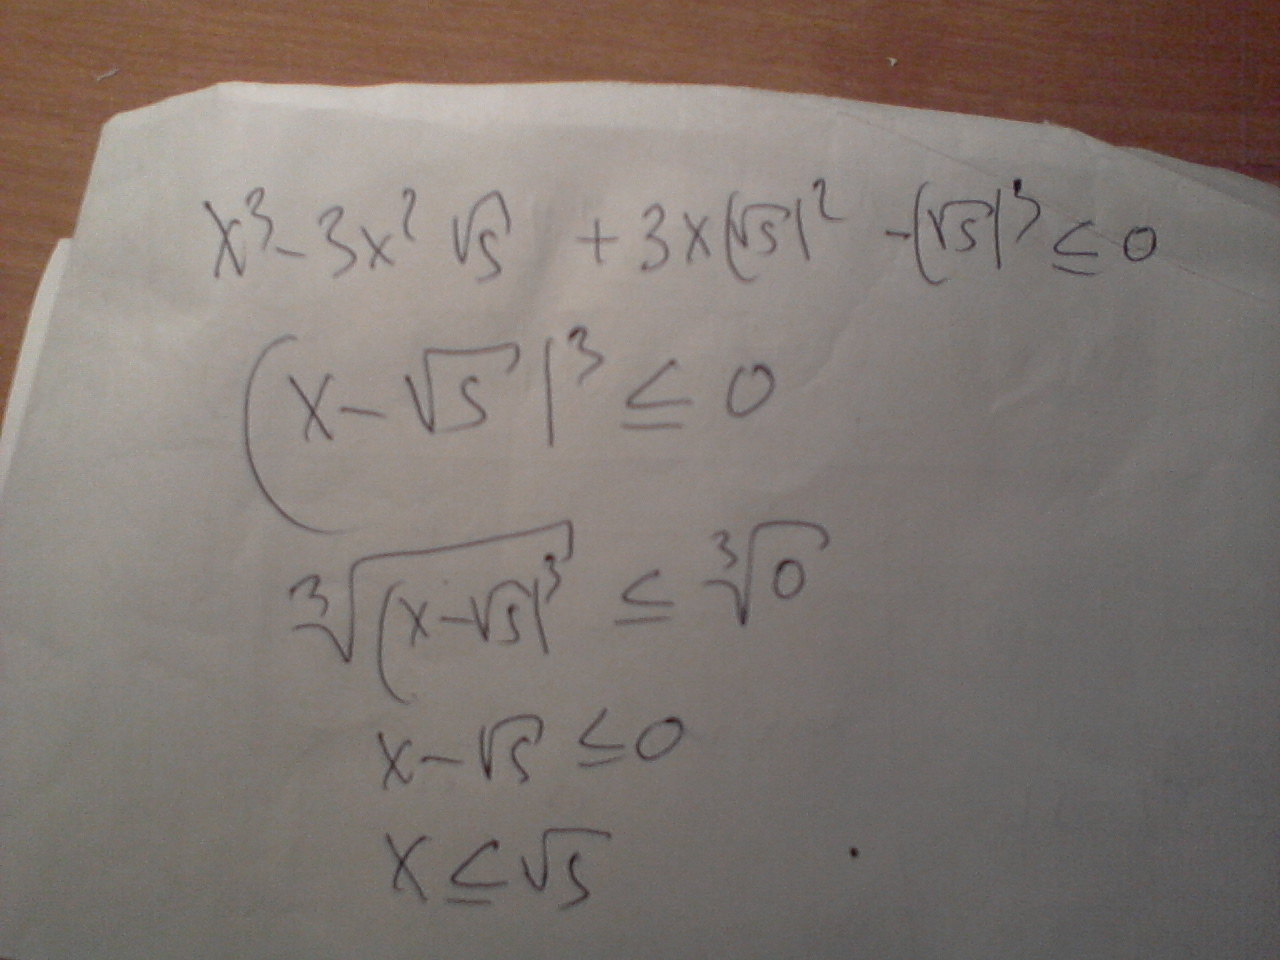 x³ - 3x² √5 + 3x(√5)² - (√5)³ ≤ 0
(x - √5)³ ≤ 0
∛(x-√5)³ ≤ ∛0
x - √5 ≤ 0
x ≤ √5